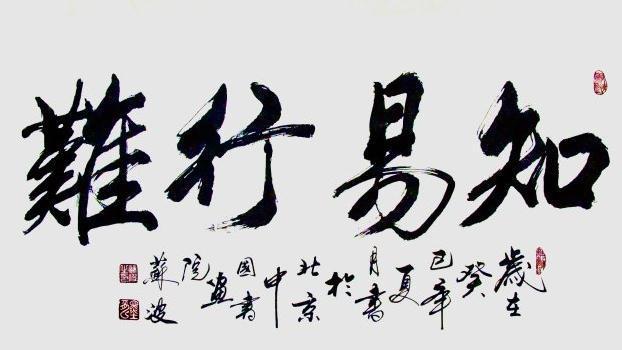 知易行難
歲在癸巳年夏月書於北京中國書畫院蘇波